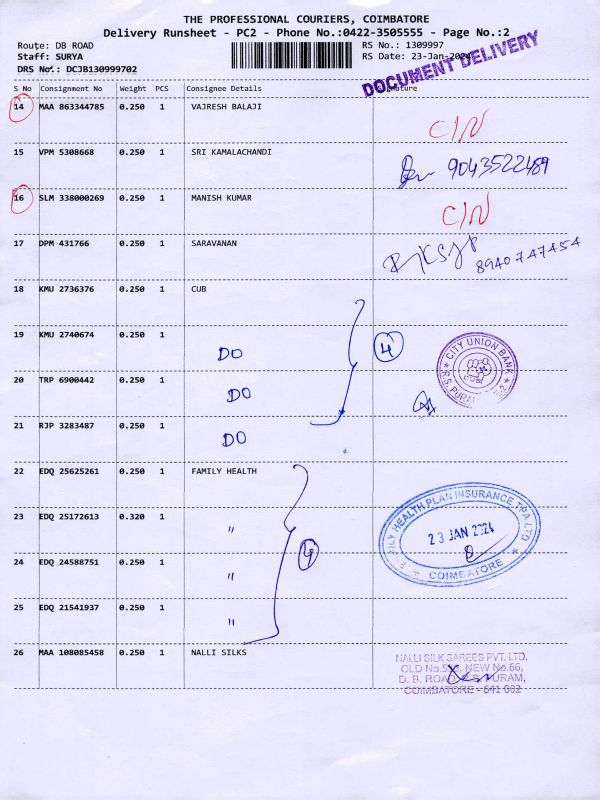 THE PROFESSIONAL COURIERS, COIMBATORE
Delivery Runsheet - PC2 - Phone No.:0422-3505555 - Page No.:2
Route: DB ROAD
RS No.: 1309997
Staff: SURYA
RS Date: 23-Jan-2024
DRS No.: DCJB130999702
DOCUMENT DELIVERY
S No Consignment No Weight PCS Consignee Details Signature
14 MAA 863344785 0.250 1 VAJRESH BALAJI
C/N
15 VPM 5308668 0.250 1 SRI KAMALACHANDI
9043522489
16 SLM 338000269 0.250 1 MANISH KUMAR
C/N
17 DPM 431766 0.250 1 SARAVANAN
8940747454
18 KMU 2736376 0.250 1 CUB
19 KMU 2740674 0.250 1
DO
4
CITY UNION BANK
R.S. PURAM
20 TRP 6900442 0.250 1
DO
21 RJP 3283487 0.250 1
DO
22 EDQ 25625261 0.250 1 FAMILY HEALTH
23 EDQ 25172613 0.320 1 "
4
FAMILY HEALTH PLAN INSURANCE TPA LTD
23 JAN 2024
COIMBATORE
24 EDQ 24588751 0.250 1 "
25 EDQ 21541937 0.250 1 "
26 MAA 108085458 0.250 1 NALLI SILKS
NALLI SILK SAREES PVT. LTD.
OLD No. NEW No.66,
D. B. ROAD, R.S. PURAM,
COIMBATORE - 641 002